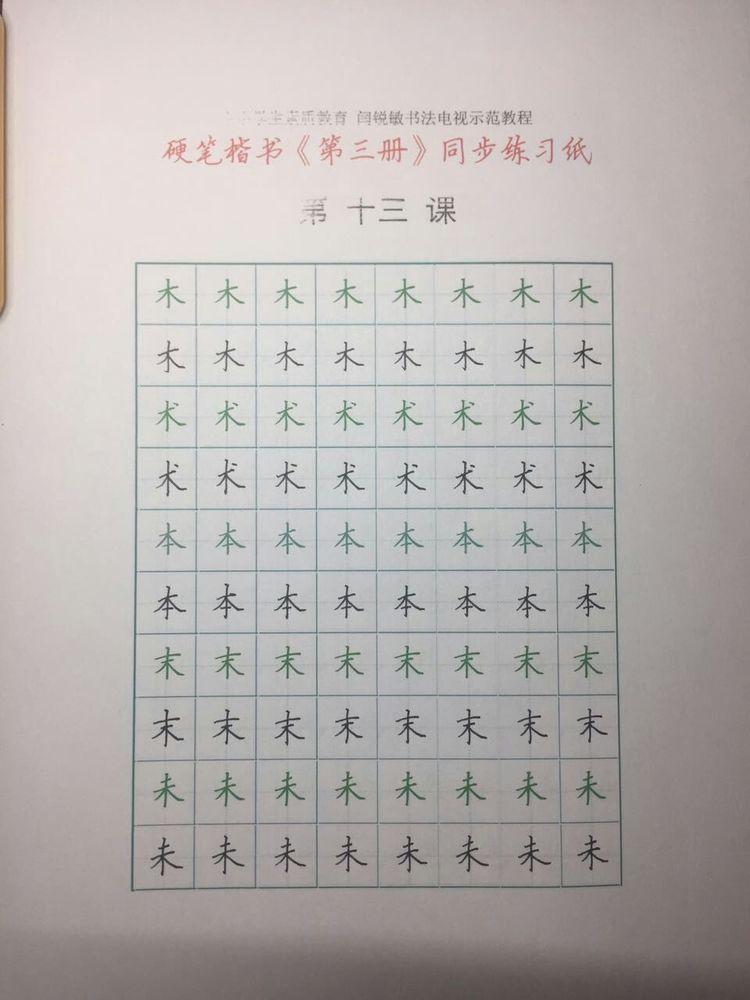 学生素质教育 闫锐敏书法电视示范教程
硬笔楷书《第三册》同步练习纸
第 十三 课
木 木 木 木 木 木 木 木
木 木 木 木 木 木 木 木
术 术 术 术 术 术 术 术
术 术 术 术 术 术 术 术
本 本 本 本 本 本 本 本
本 本 本 本 本 本 本 本
末 末 末 末 末 末 末 末
末 末 末 末 末 末 末 末
未 未 未 未 未 未 未 未
未 未 未 未 未 未 未 未